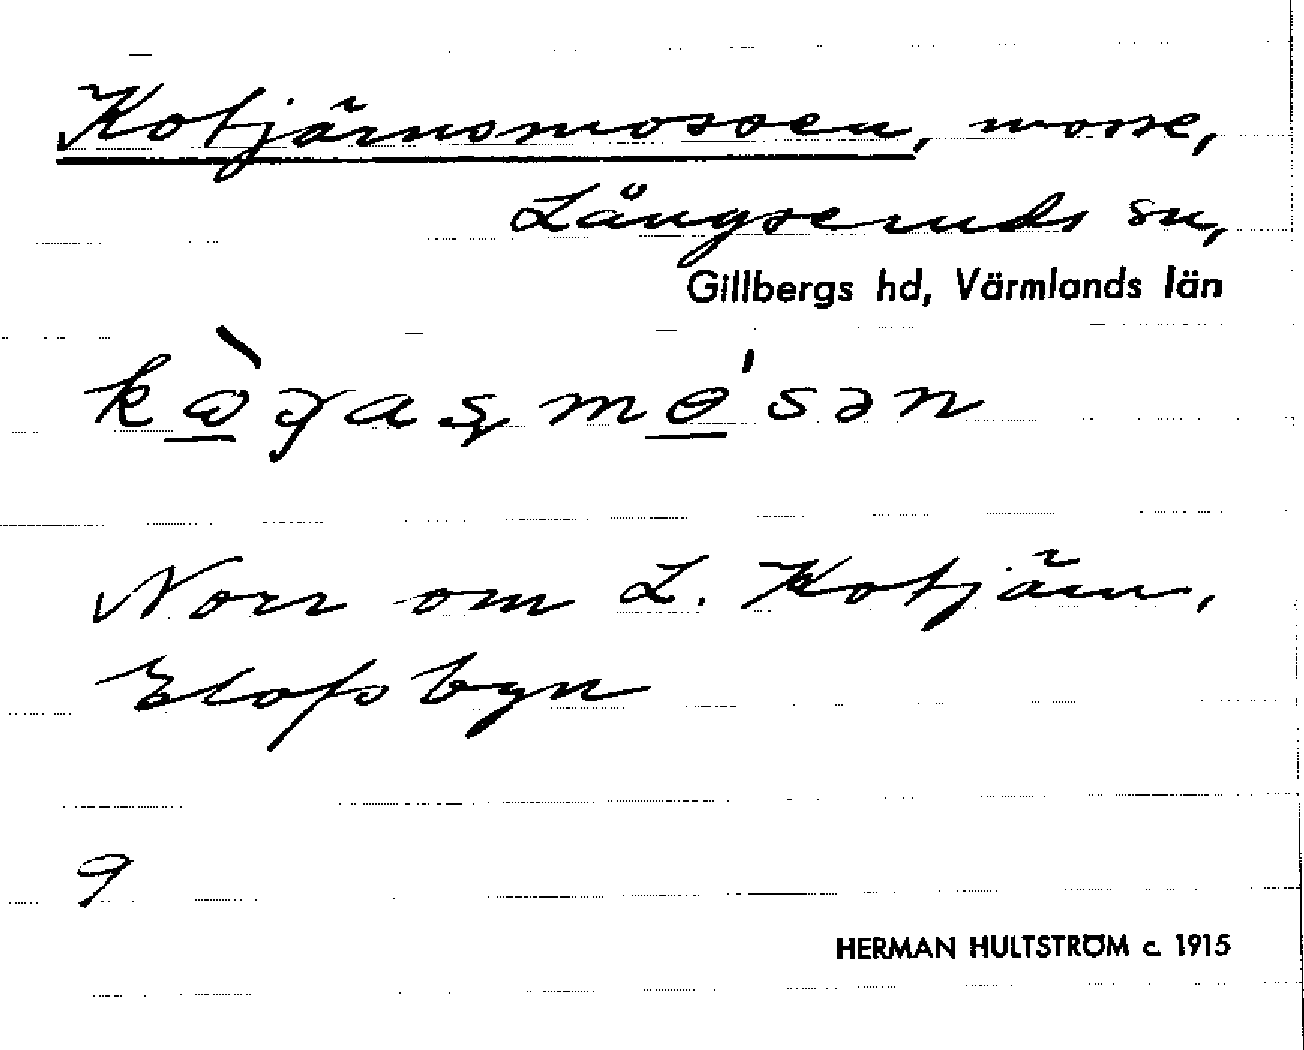 Kotjärnsmossen, mosse,
Långseruds sn,
Gillbergs hd, Värmlands län
Norr om L. Kotjärn,
Elofsbyn
9
HERMAN HULTSTRÖM c. 1915